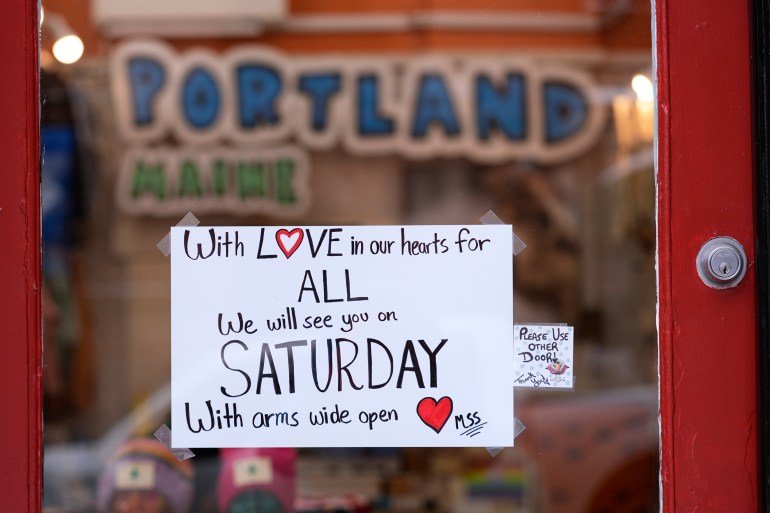 PORTLAND
MAINE
With LOVE in our hearts for
ALL
We will see you on
SATURDAY
With arms wide open
MSS
PLEASE USE
OTHER
DOOR!
Thank You!